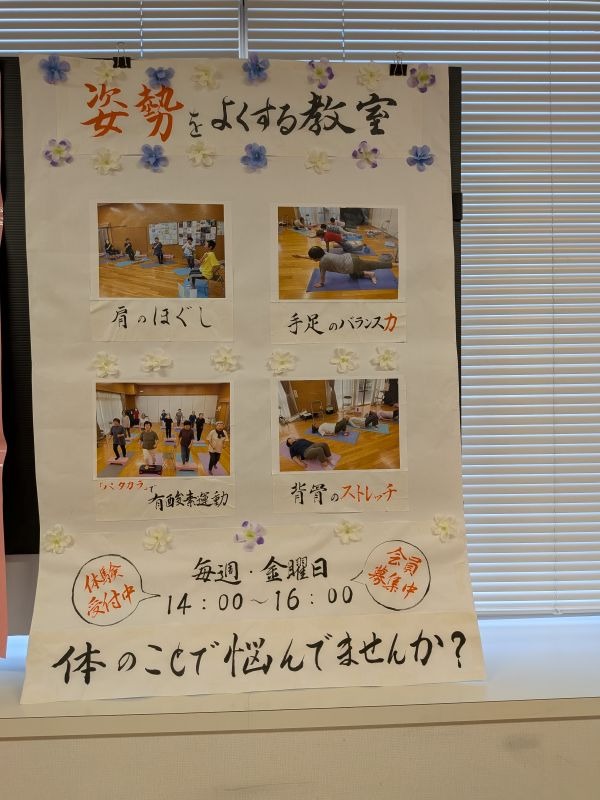 姿勢をよくする教室
肩のほぐし
手足のバランス力
「パタカラ」で
有酸素運動
背骨のストレッチ
体験
受付中
毎週・金曜日
14：00～16：00
会員
募集中
体のことで悩んでませんか？